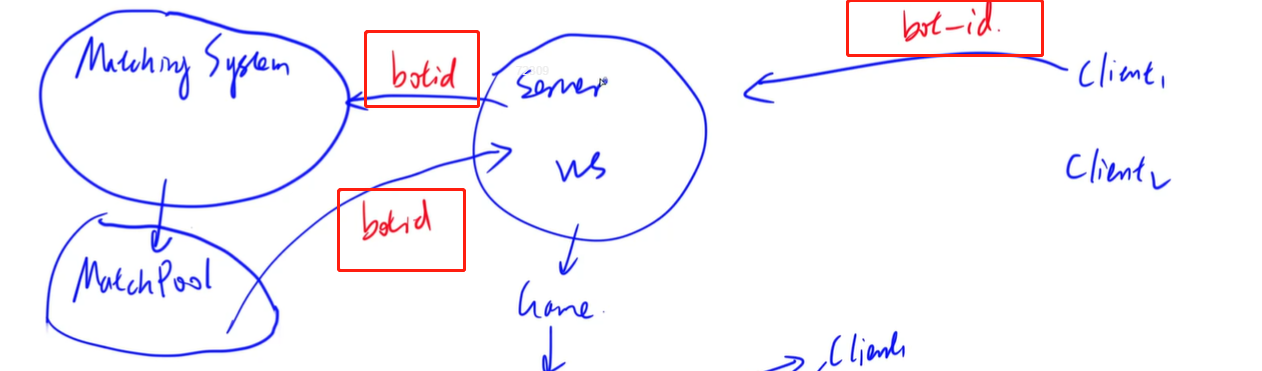 bot-id.
Matching System
botid
server
Client1
ws
Client2
botid
MatchPool
Game.
Client1